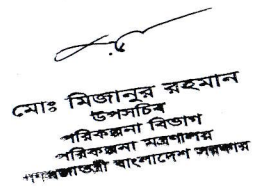 মোঃ মিজানুর রহমান
উপসচিব
পরিকল্পনা বিভাগ
পরিকল্পনা মন্ত্রণালয়
গণপ্রজাতন্ত্রী বাংলাদেশ সরকার